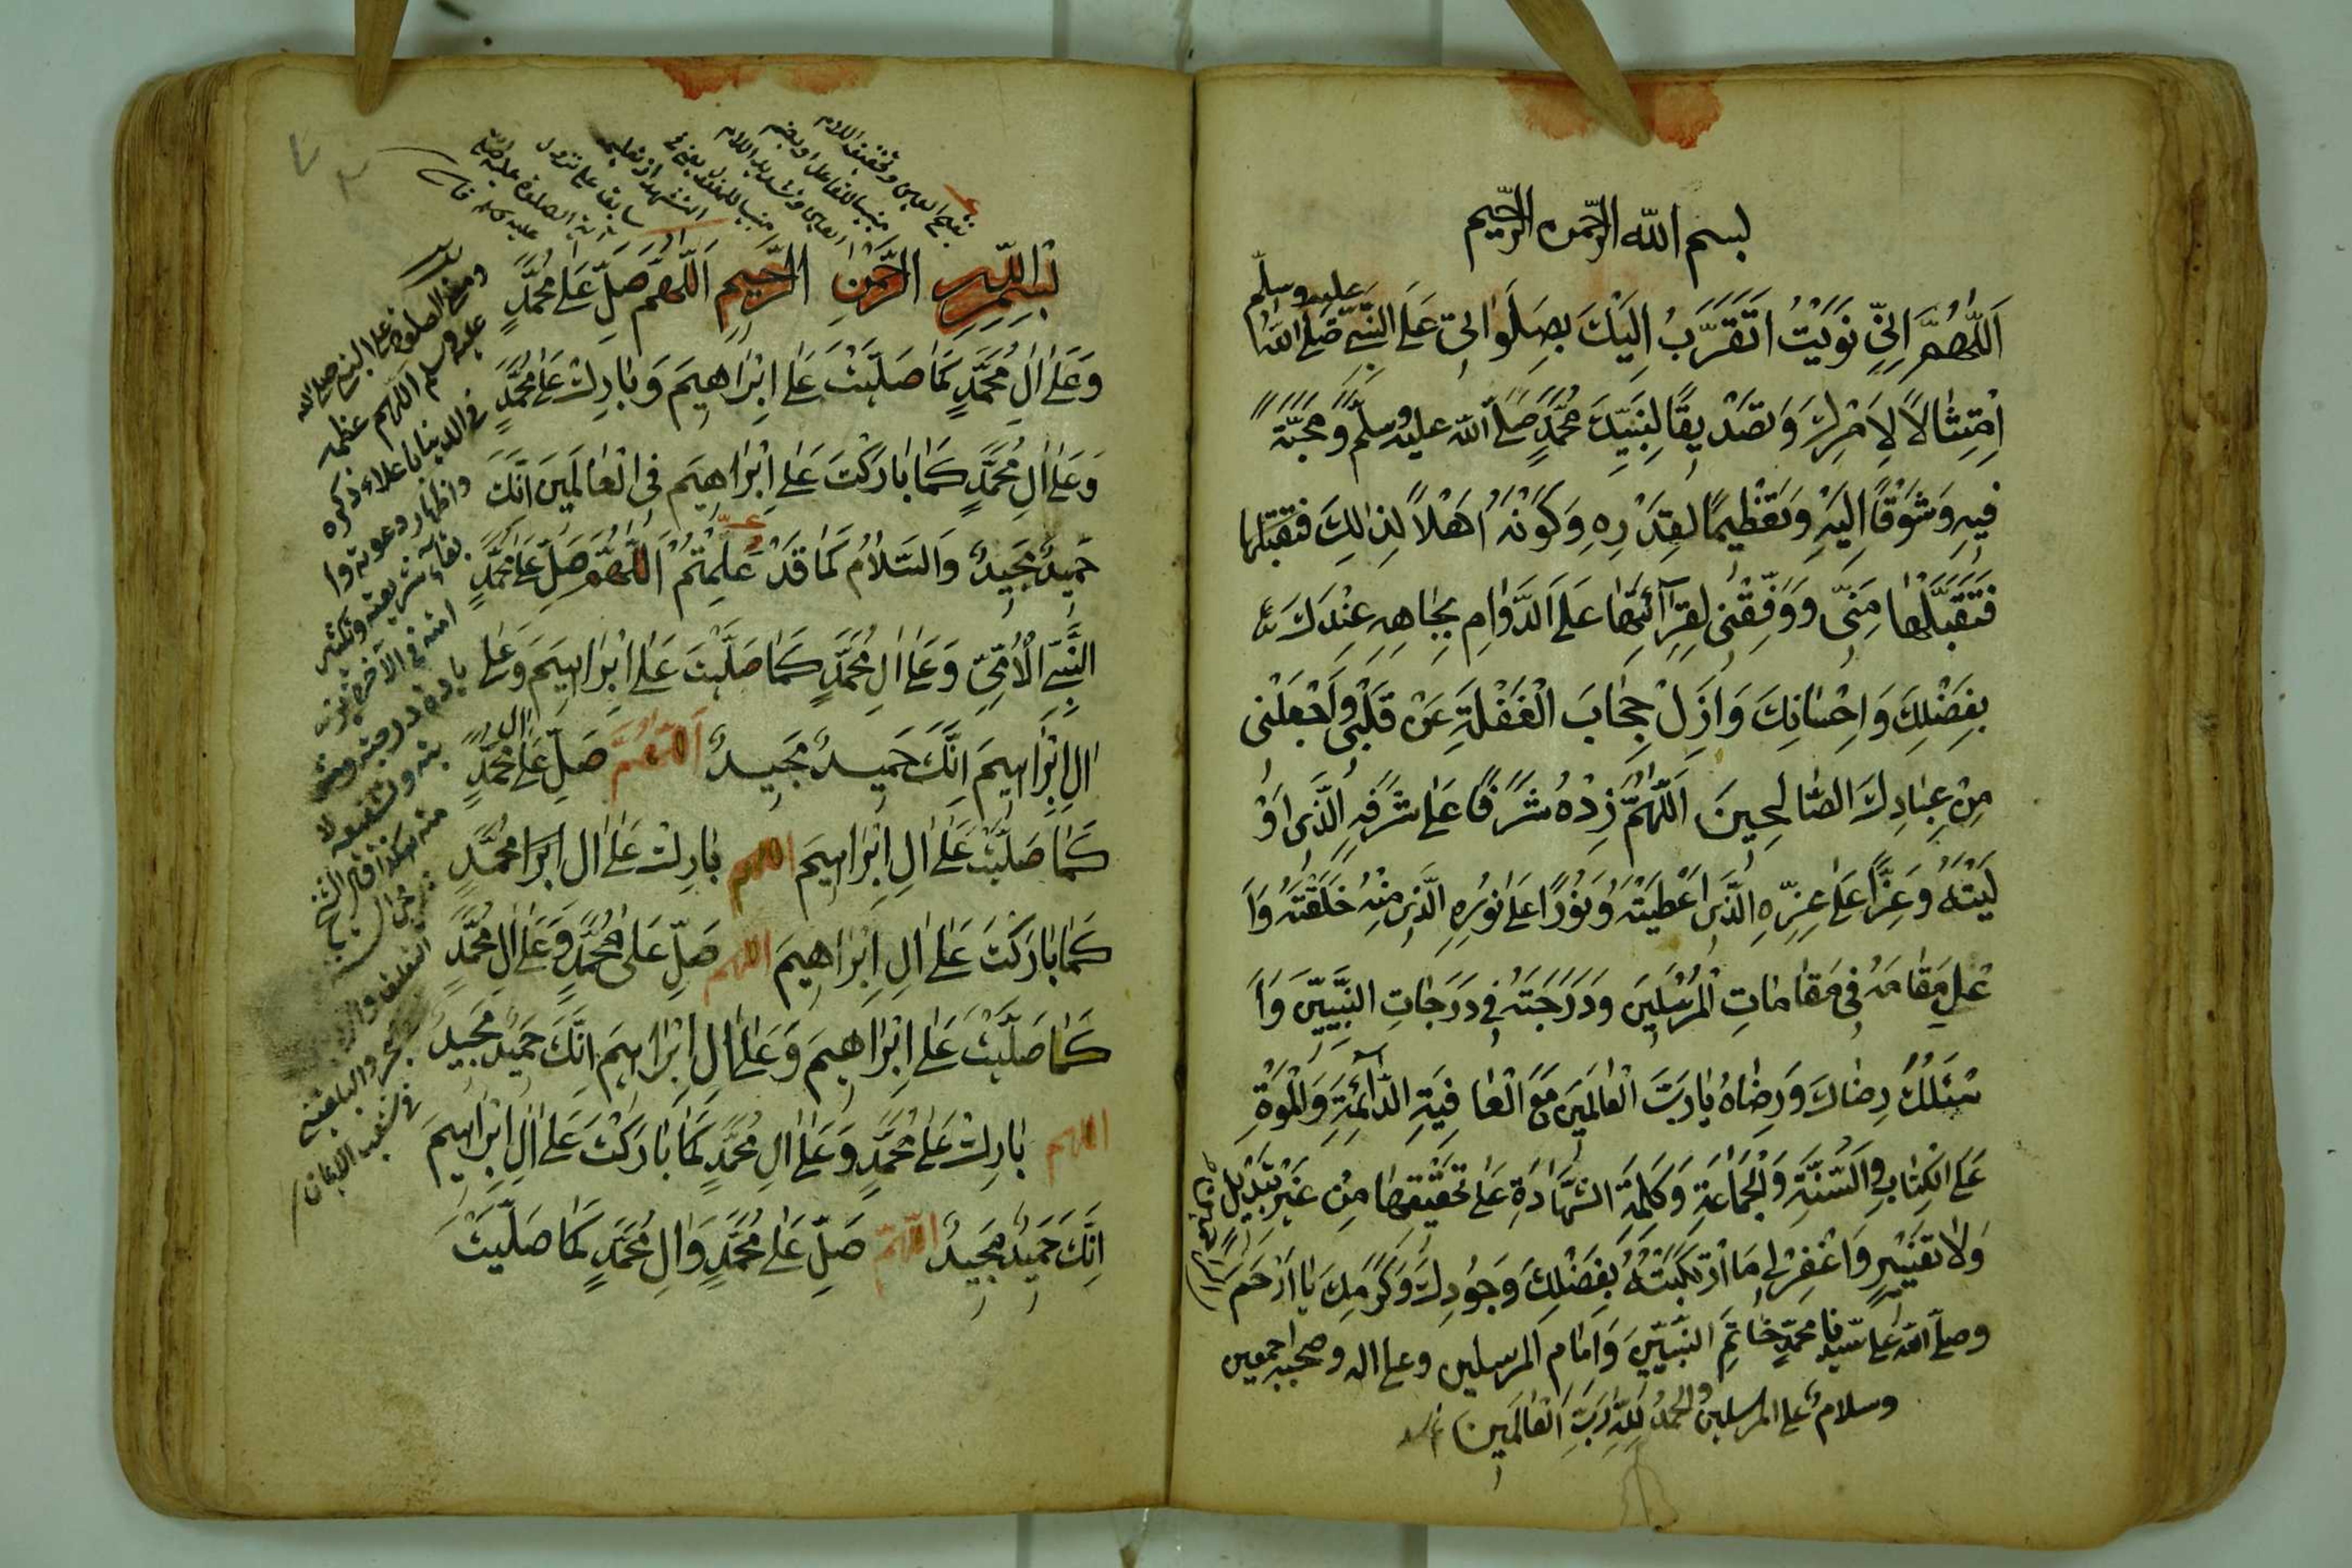 بسم الله الرحمن الرحيم
اَللّٰهُمَّ اِنِّى نَوَيْتُ اَتَقَرَّبُ اِلَيْكَ بِصَلَوَاتِى عَلَى النَّبِىِّ صَلَّى اللّٰهُ عليه وسلم
اِمْتِثَالًا لِاَمْرِكَ وَتَصْدِيقًا لِنَبِيِّكَ مُحَمَّدٍ صَلَّى اللّٰه عليه وسلم وَمَحَبَّةً
فِيهِ وَشَوْقًا اِلَيْهِ وَتَعْظِيمًا لِقَدْرِهِ وَكَوْنُهُ اَهْلًا لِذٰلِكَ فتقبلها
فَتَقَبَّلْهَا مِنِّى وَوَفِّقْنِى لِقِرَآئَتِهَا عَلَى الدَّوَامِ بِجَاهِهِ عِنْدَكَ
بِفَضْلِكَ وَاِحْسَانِكَ وَاَزِلْ حِجَابَ الْغَفْلَةِ عَنْ قَلْبِى وَاجْعَلْنِى
مِنْ عِبَادِكَ الصَّالِحِينَ اَللّٰهُمَّ زِدْهُ شَرَفًا عَلٰى شَرَفِهِ الَّذِى اَوْ
لَيْتَهُ وَعِزًّا عَلٰى عِزِّهِ الَّذِى اَعْطَيْتَهُ وَنُورًا عَلٰى نُورِهِ الَّذِى مِنْهُ خَلَقْتَهُ وَاَ
عْلِ مَقَامَهُ فِى مَقَامَاتِ الْمُرْسَلِينَ وَدَرَجَتَهُ فِى دَرَجَاتِ النَّبِيِّينَ وَاَ
سْئَلُكَ رِضَاكَ وَرِضَاهُ يَا رَبَّ الْعَالَمِينَ مَعَ الْعَافِيَةِ الدَّآئِمَةِ وَالْمَوْتِ
عَلَى الْكِتَابِ وَالسُّنَّةِ وَالْجَمَاعَةِ وَكَلِمَةِ الشَّهَادَةِ عَلٰى تَحْقِيقِهَا مِنْ غَيْرِ تَبْدِيلٍ
وَلَا تَغْيِيرٍ وَاغْفِرْ لِى مَا ارْتَكَبْتُهُ بِفَضْلِكَ وَجُودِكَ وَكَرَمِكَ يَا اَرْحَمَ الراحمين
وصلى الله على سيدنا محمدٍ خَاتَمِ النَّبِيِّينَ وَاِمَامِ المرسلين وعلى اله وصحبه اجمعين
وسلامٌ على المرسلين والحمدُ لِلّٰهِ رَبِّ الْعَالَمِينَ
بِسْمِ اللّٰهِ الرَّحْمٰنِ الرَّحِيمِ اَللّٰهُمَّ صَلِّ عَلٰى مُحَمَّدٍ
وَعَلٰى اٰلِ مُحَمَّدٍ كَمَا صَلَّيْتَ عَلٰى اِبْرَاهِيمَ وَبَارِكْ عَلٰى مُحَمَّدٍ
وَعَلٰى اٰلِ مُحَمَّدٍ كَمَا بَارَكْتَ عَلٰى اِبْرَاهِيمَ فِى الْعَالَمِينَ اِنَّكَ
حَمِيدٌ مَجِيدٌ وَالسَّلَامُ كَمَا قَدْ عَلِمْتُمْ اَللّٰهُمَّ صَلِّ عَلٰى مُحَمَّدٍ
النَّبِىِّ الْاُمِّىِّ وَعَلٰى اٰلِ مُحَمَّدٍ كَمَا صَلَّيْتَ عَلٰى اِبْرَاهِيمَ وَعَلٰى
اٰلِ اِبْرَاهِيمَ اِنَّكَ حَمِيدٌ مَجِيدٌ اَللّٰهُمَّ صَلِّ عَلٰى اٰلِ مُحَمَّدٍ
كَمَا صَلَّيْتَ عَلٰى اٰلِ اِبْرَاهِيمَ اللهم بَارِكْ عَلٰى اٰلِ ابرا مُحَمَّدٍ
كَمَا بَارَكْتَ عَلٰى اٰلِ اِبْرَاهِيمَ اللهم صَلِّ عَلٰى مُحَمَّدٍ وَعَلٰى اٰلِ مُحَمَّدٍ
كَمَا صَلَّيْتَ عَلٰى اِبْرَاهِيمَ وَعَلٰى اٰلِ اِبْرَاهِيمَ اِنَّكَ حَمِيدٌ مَجِيدٌ
اللهم بَارِكْ عَلٰى مُحَمَّدٍ وَعَلٰى اٰلِ مُحَمَّدٍ كَمَا بَارَكْتَ عَلٰى اٰلِ اِبْرَاهِيمَ
اِنَّكَ حَمِيدٌ مَجِيدٌ اللّٰهُمَّ صَلِّ عَلٰى مُحَمَّدٍ وَاٰلِ مُحَمَّدٍ كَمَا صَلَّيْتَ
بفتح العين وتخفيف اللام
مبنيا للفاعل او بضم
العين وتشديد اللام
مبنيا للمفعول
ومعنى الصلوة على النبي صلى الله
عليه وسلم اللهم عظمه
فى الدنيا باعلاء ذكره
واظهار دعوته وا
بقاء شريعته وتكثير